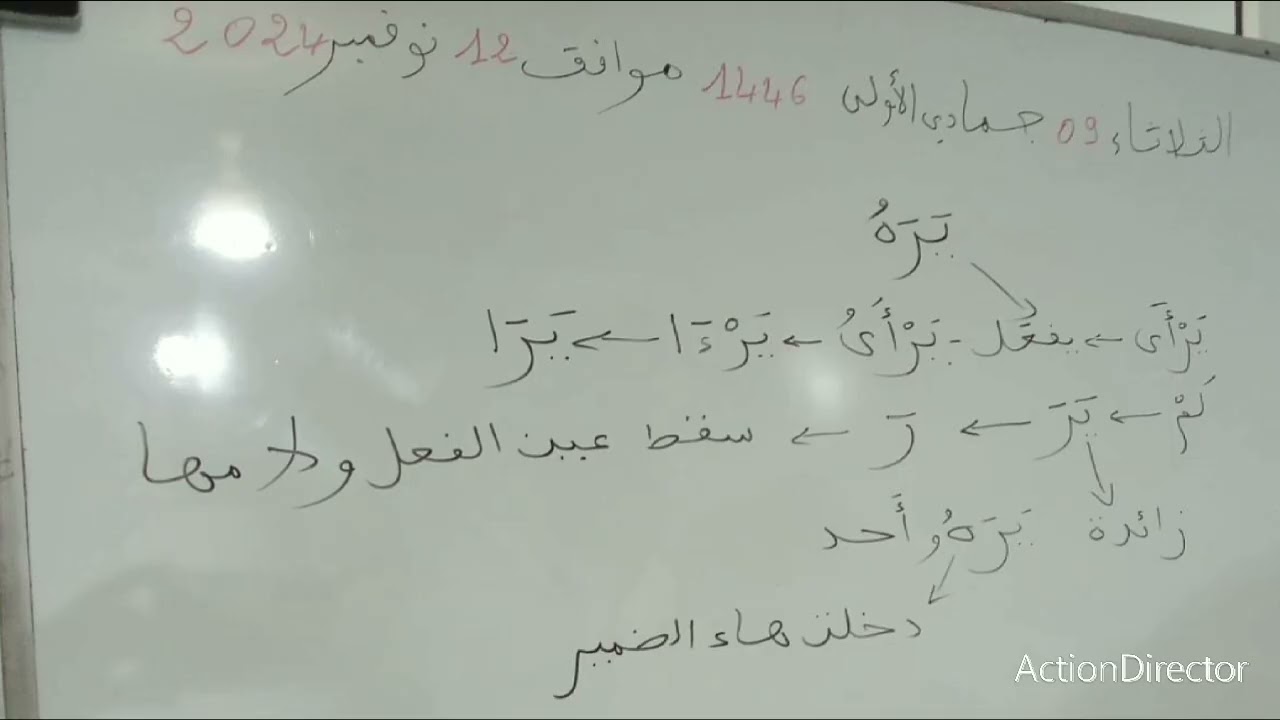 الثلاثاء 09 جمادى الأولى 1446 موافق 12 نوفمبر 2024
يَرَهُ
يَرْأَى ← يفعَل - يَرْأَىُ ← يَرْءَا ← يَرَا
لَمْ ← يَرَ ← رَ ← سقط عين الفعل ولامها
زائدة يَرَهُو أَحد
دخلت هاء الضمير
ActionDirector